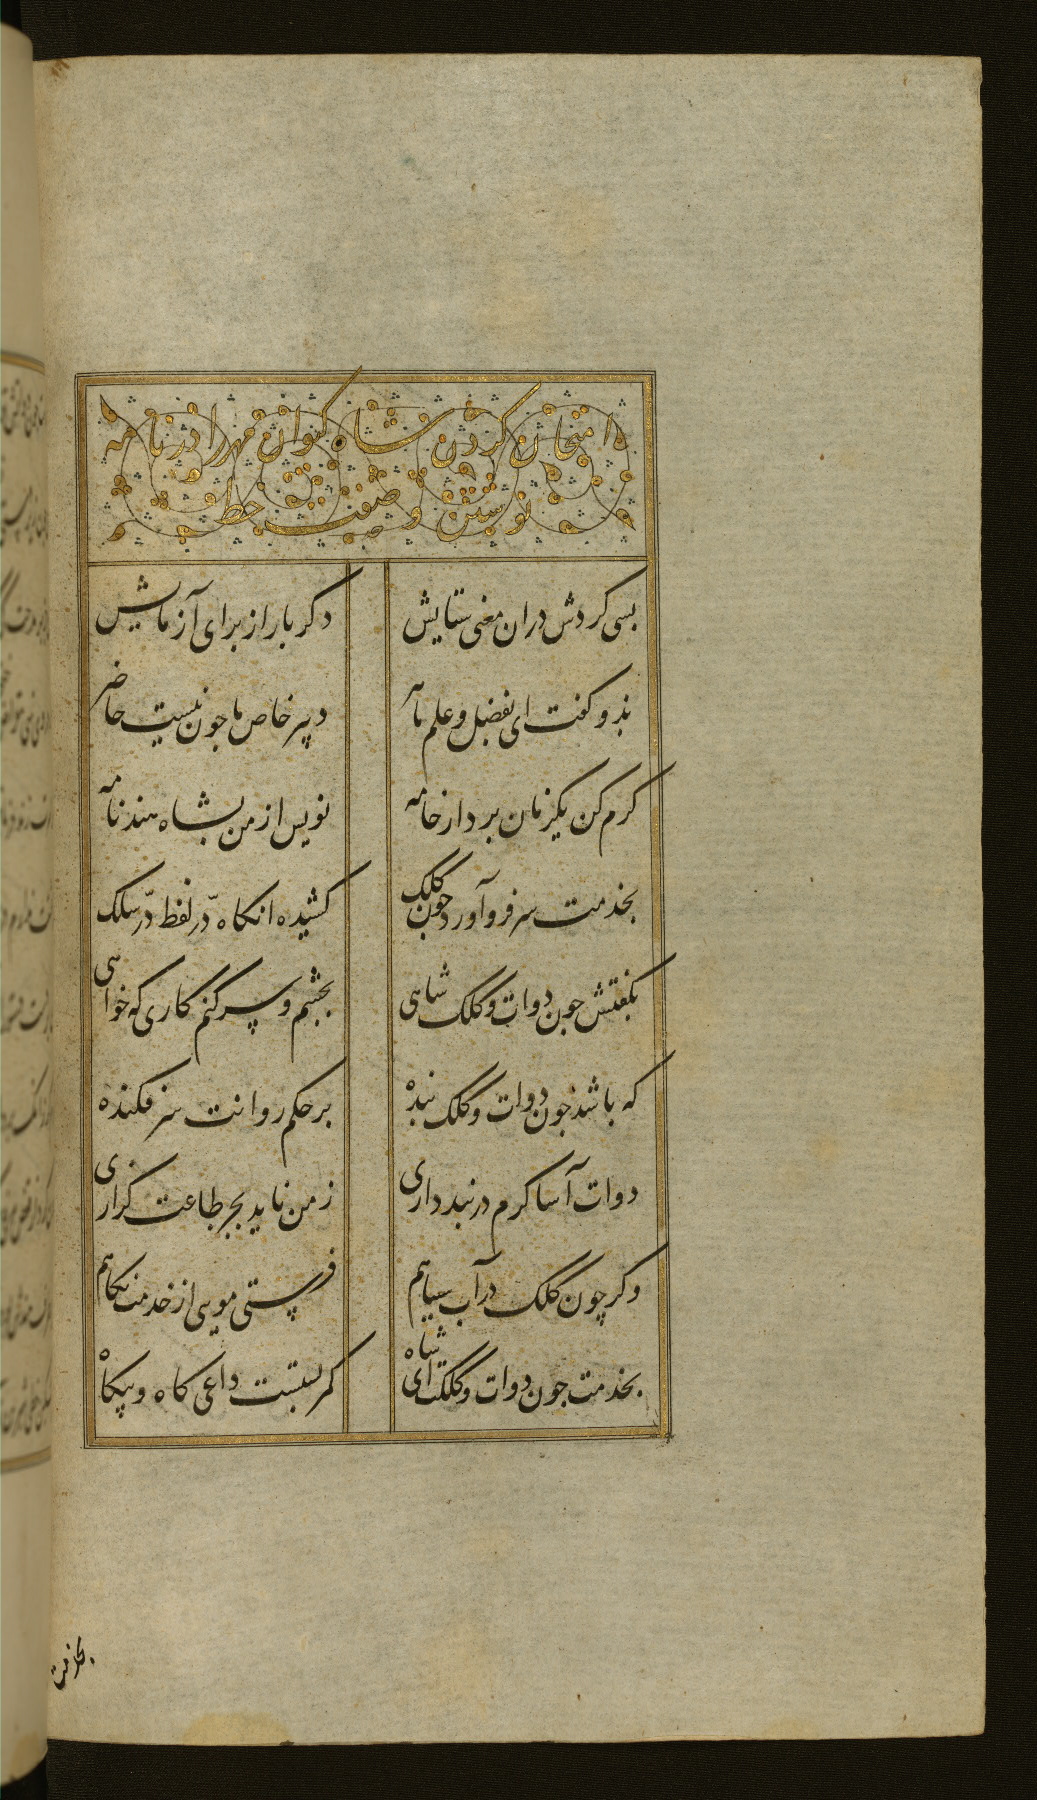 امتحان کردن شاه کیوان مهر را در نامه
نوشتن و صفت خط
بسی کردش دران معنی ستایش
دکر بار از برای آزمایش
بذو کفت ای بفضل و علم ماهر
دپیر خاص ما جون نیست حاضر
کرم کن یکزمان بردار خامه
نویس از من بشاه هند نامه
بخدمت سر فرو آورد جون کلک
کشیده انکاه درّ لفظ در سلک
بکفتش جون دوات و کلک شاهی
بجشم و سر کنم کاری که خواهی
که باشذ جون دوات و کلک بنده
بر حکم روانت سر فکنده
دوات آسا کرم در بند داری
ز من ناید بجز طاعت کزاری
وکر چون کلک در آب سیاهم
فرستی مویی از خدمت نکاهم
بخدمت جون دوات و کلکت ای شاه
کمر بستست داعی کاه و بیکاه
بخدمت